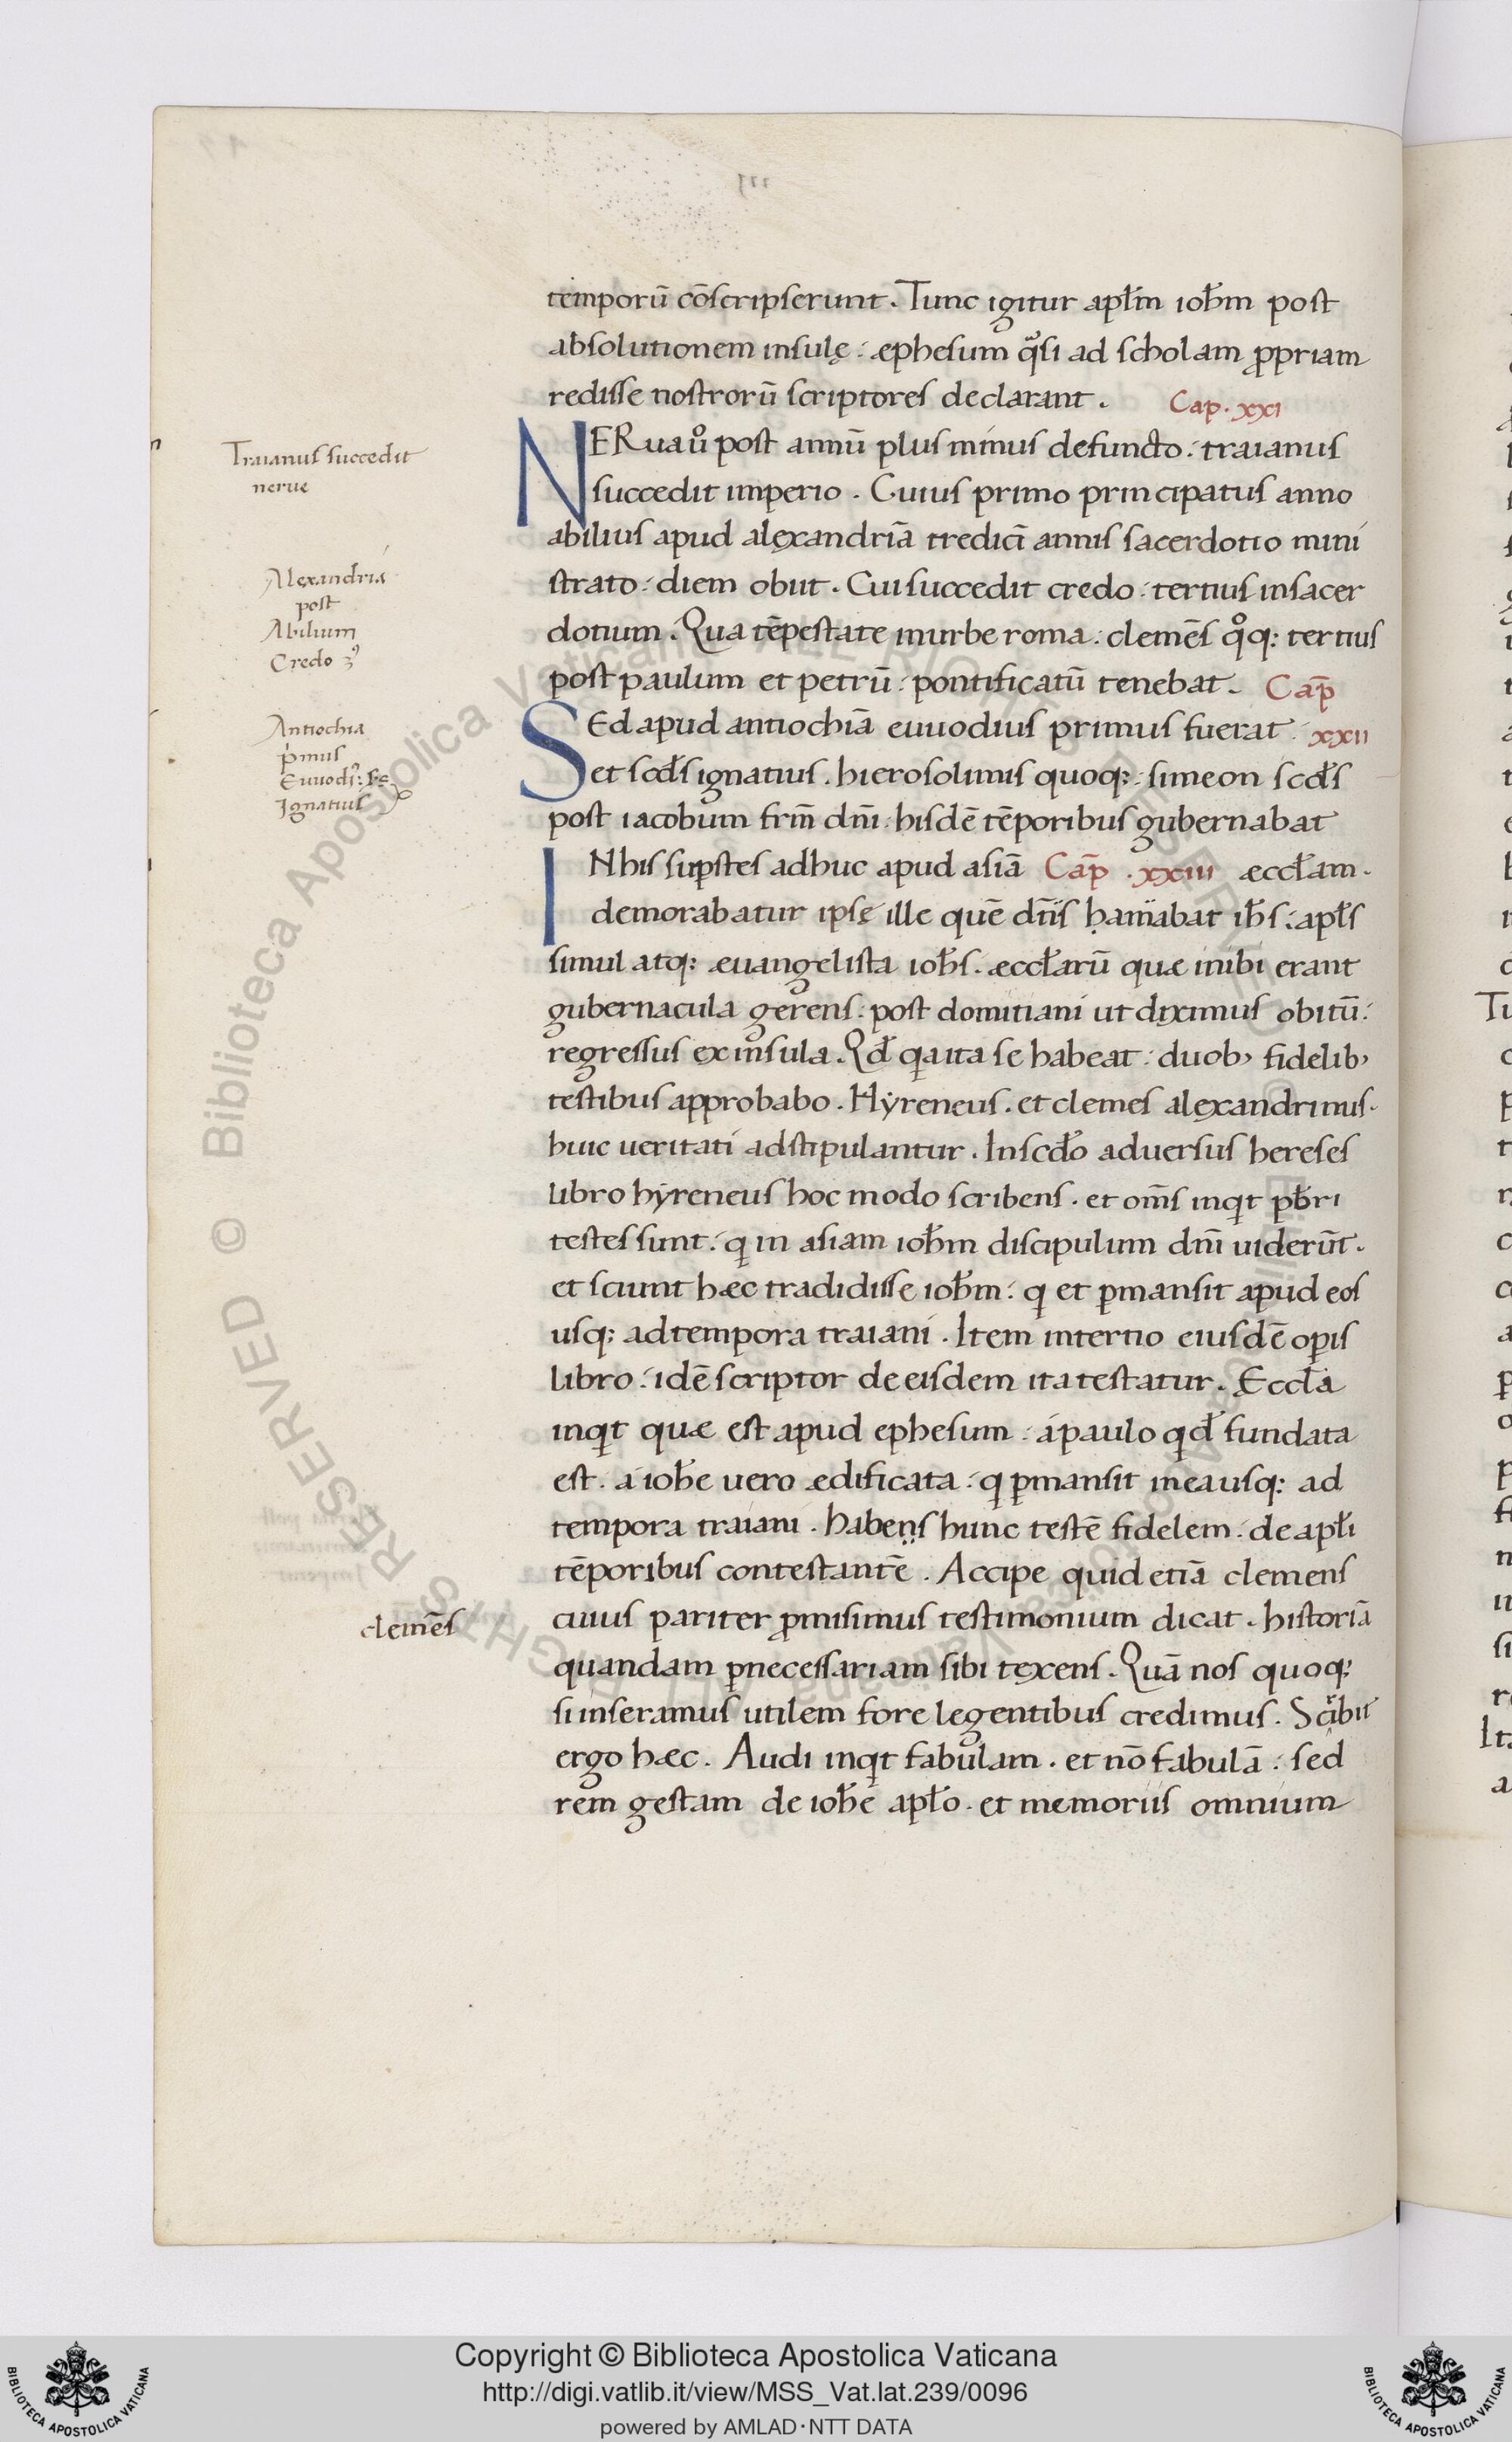 temporū cōscripserunt. Tunc igitur apłm ioh̄m post
absolutionem insulę: æphesum qͣsi ad scholam ꝓpriam
redisse nostrorū scriptores declarant. Cap. xxi
Traianus succedit
nerue
NERuauͦ post annū plus minus defuncto: traianus
succedit imperio. Cuius primo principatus anno
abilius apud alexandriā tredicī annis sacerdotio mini
Alexandria
post
Abilium
Credo 3ꝰ
strato: diem obiit. Cui succedit credo: tertius insacer
dotium. Qua tēpestate inurbe roma: clemēs qͦq: tertius
post paulum et petrū: pontificatū tenebat. Cap̄
Antiochia
pͥmus
Euuodiꝰ: Se
Ignatius
SEd apud antiochiā euuodius primus fuerat: xxii
et scd̄s ignatius. hierosolimis quoq: simeon scd̄s
post iacobum frm̄ dn̄i: hisdē tēporibus gubernabat
INhis supstes adhuc apud asiā Cap̄ .xxiii æccłam.
demorabatur ipse ille quē dn̄s hamabat ih̄s: apłs
simul atq: æuangelista ioh̄s. æccłarū quæ inibi erant
gubernacula gerens: post domitiani ut diximus obitū:
regressus ex insula. Qd̄ qa ita se habeat: duob, fidelib,
testibus approbabo. Hyreneus. et clemes alexandrinus.
huic ueritati adstipulantur. Inscd̄o aduersus hereses
libro hyreneus hoc modo scribens. et om̄s inqt pb̄ri
testes sunt: q in asiam ioh̄m discipulum dn̄i uiderūt.
et sciunt hæc tradidisse ioh̄m: q et ꝑmansit apud eos
usq: ad tempora traiani. Item intertio eiusdē opis
libro: idē scriptor de eisdem ita testatur. Eccła
inqt quæ est apud ephesum: a paulo qd̄ fundata
est. a ioh̄e uero ædificata: q ꝑmansit inea usq: ad
tempora traiani. habens hunc testē fidelem: de apłi
tēporibus contestantē. Accipe quid etiā clemens
clemēs
cuius pariter ꝓmisimus testimonium dicat. historiā
quandam ꝑnecessariam sibi texens. Quā nos quoq:
si inseramus utilem fore legentibus credimus. Scͥbit
ergo hæc. Audi inqt fabulam. et nō fabulā: sed
rem gestam de ioh̄e apło. et memoriis omnium
Copyright © Biblioteca Apostolica Vaticana
http://digi.vatlib.it/view/MSS_Vat.lat.239/0096
powered by AMLAD·NTT DATA